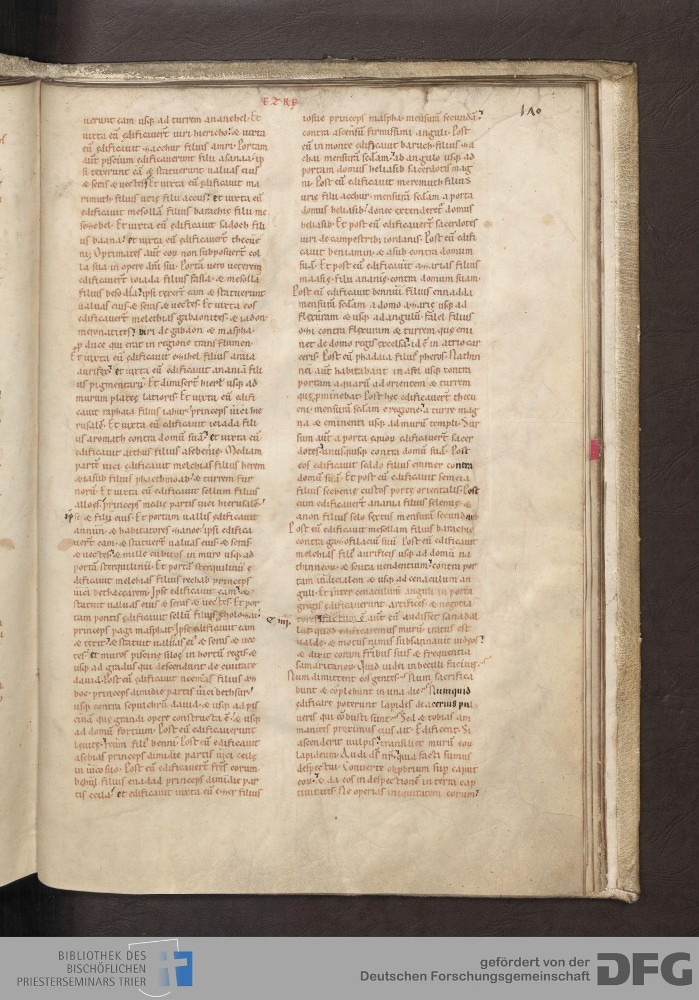 EZRE
180
uerunt eam usq; ad turrem ananehel. Et
iuxta eū edificauert uiri hiericho. & iuxta
eū edificauit zacchur filius amri. Portam
aut piscium edificauerunt filii asanaa. ip
si texerunt eā & statuerunt ualuas eius
& seras & uectes. Et iuxta eū edificauit ma
rimuth filius urie filii accus. et iuxta eū
edificauit mosollā filius barachie filii me
sezebel. Et iuxta eū edificauit sadoch fili
us baana. et iuxta eū edificauert thecue
ni. Optimates aut eoꝝ non subposuert col
la sua in opere dn̄i sui. Portā uero ueterem
edificauert ioiada filius fasea. & mesollā
filius besodia. ipsi texert eam & statuerunt
ualuas eius & seras & uectes. Et iuxta eos
edificauert melethias gabaonites & iadon
meronatites. uiri de gabaon & maspha.
ꝓ duce qui erat in regione trans flumen.
Et iuxta eū edificauit ezihel filius araia
aurifex. et iuxta eū edificauit anania fili
us pigmentarii. Et dimisert hierlm usq; ad
murum platee latioris. Et iuxta eū edifi
cauit raphaia filius
rusalē. Et iuxta eū edificauit ieiada fili
us aromath contra domū suā. et iuxta eū
edificauit attus filius asebenie. Mediam
partē uici edificauit melchias filius herem
norū. Et iuxta eū edificauit sellum filius
alloes princeps medie partis uici hierusalē.
ip se & filie eius. Et portam uallis edificauit
annun. & habitatores zanoe. ipsi edifica
uert eam. & statuert ualuas eius & seras
& uectes. & mille cubitos in muro usq; ad
portā sterquilinii. Et portā sterquilinii e
dificauit melchias filius rechab princeps
uici bethaccarem. Ipse edificauit eam. &
statuit ualuas eius & seras & uectes. Et por
tam fontis edificauit sellū filius
princeps pagi maspha. Ipse edificauit eam
& texit. & statuit ualuas ei & seras & uec
tes. et muros piscine siloe in hortū regis. &
usq; ad gradus qui descendunt de ciuitate
dauid. Post eū edificauit neemias filius az
boc. princeps dimidie partis uici bethsur.
usq; contra sepulchrū dauid. & usq; ad pis
cinā que grandi opere constructa ē. & usq;
ad domū fortium. Post eū edificauerunt
leuite. reum filī benni. Post eū edificauit
asebias princeps dimidie partis uici ceile
in uico suo. Post eū edificauert frs̄ eorum.
filius enadad princeps dimidie par
tis ceila. et edificauit iuxta eū ezer filius
iosue princeps maspha. mensurā secundā
contra ascensū firmissimi anguli. Post
eū in monte edificauit baruch filius za
chai mensurā sedam. ab angulo usq; ad
portam domus heliasib sacerdotis mag
ni. Post eū edificauit meremuth filius
urie filii acchur. mensurā sedam a porta
domus heliasib. donec extenderet domus
heliasib. Et post eū edificauert sacerdotes
uiri de campestribꝫ iordanis. Post eū edifi
cauit beniamin & asub contra domum
suā. Et post eū edificauit azarias filius
maasie filii ananie contra domum suam.
Post eū edificauit bennui filius ennadda
mensurā sedam. a domo azarie usq; ad
flexuram & usq; ad angulū. falel filius
ozi contra flexuram & turrem que emi
net de domo regis excelsa. id ē in atrio car
ceris. Post eū phadaia filius pheros. Nathin
nei aut habitabant in ofel. usq; contra
portam aquarū ad orientem. & turrem
que ꝓminebat. Post hec edificauert thecu
eni. mensurā sedam e regione. a turre mag
na & eminenti usq; ad murū templi. Sur
sum aut a porta equoꝝ edificauert sacer
dotes unusquisq; contra domū suā. Post
eos edificauit saddo filius emmer contra
domū suā. Et post eū edificauit semeia
filius secheniē custos porte orientalis. Post
eum edificauert anania filius selemie. &
anon filius selo sextus mensurā secundam.
Post eū edificauit mosollam filius barachie
contra gazofilaciū suū. Post eū edificauit
melchias filī aurificis usq; ad domū na
thinneoꝝ. & scuta uendentium. contra por
tam iudicialem & usq; ad cenaculum an
guli. Et inter cenaculum anguli in porta
gregis edificauerunt artifices & negotia
tores. & iiii. Factum ē aut cū audisset sanabal
lat quod edificaremus murū iratus est
ualde. & motus nimis subsannauit iudeos.
& dixit coram fribus suis & frequentia
samaritanoꝝ. Quid iudei inbecilli faciunt.
Num dimittent eos gentes. Num sacrifica
bunt & cōplebunt in una die. Numquid
edificare poterunt lapides de aceruis pul
ueris qui cōbusti sunt. Sed & tobias am
manites proximus eius ait. Edificent. Si
ascenderit uulpis. transiliet murū eoꝝ
lapideum. Audi dś nr̄. quia facti sumus
despectui. Conuerte obprbrium sup caput
eoꝝ. & da eos in despectionē in terra cap
tiuitatis. Ne operias iniquitatem eorum.
BIBLIOTHEK DES
BISCHÖFLICHEN
PRIESTERSEMINARS TRIER
gefördert von der
Deutschen Forschungsgemeinschaft
DFG